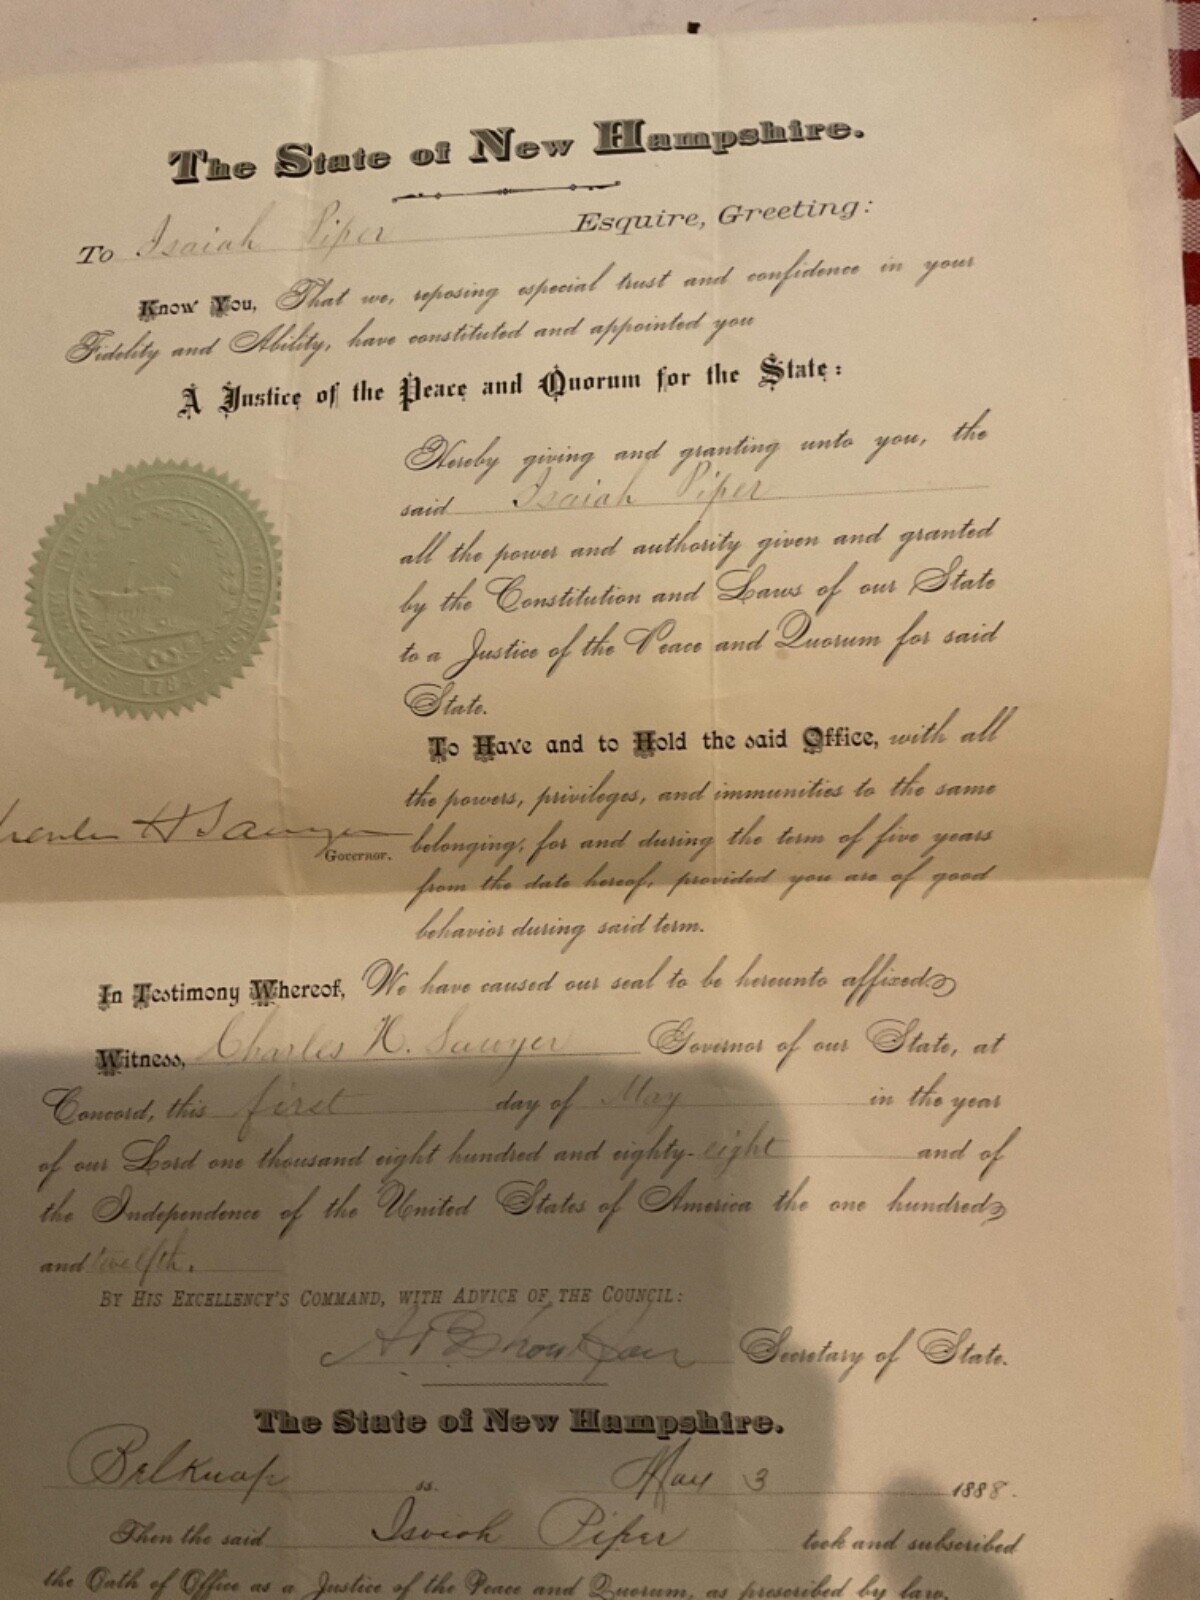 The State of New Hampshire.
To Isaiah Piper Esquire, Greeting:
Know You, That we, reposing especial trust and confidence in your
Fidelity and Ability, have constituted and appointed you
A Justice of the Peace and Quorum for the State:
Hereby giving and granting unto you, the
said Isaiah Piper
all the power and authority given and granted
by the Constitution and Laws of our State
to a Justice of the Peace and Quorum for said
State.
To Have and to Hold the said Office, with all
the powers, privileges, and immunities to the same
belonging, for and during the term of five years
from the date hereof, provided you are of good
behavior during said term.
1784
H Sawyer
Governor.
In Testimony Whereof, We have caused our seal to be hereunto affixed
Witness, Charles H. Sawyer Governor of our State, at
Concord, this first day of May in the year
of our Lord one thousand eight hundred and eighty-eight and of
the Independence of the United States of America the one hundred
and twelfth.
BY HIS EXCELLENCY'S COMMAND, WITH ADVICE OF THE COUNCIL:
Secretary of State.
The State of New Hampshire.
Belknap ss. May 3 1888.
Then the said Isaiah Piper took and subscribed
the Oath of Office as a Justice of the Peace and Quorum, as prescribed by law.